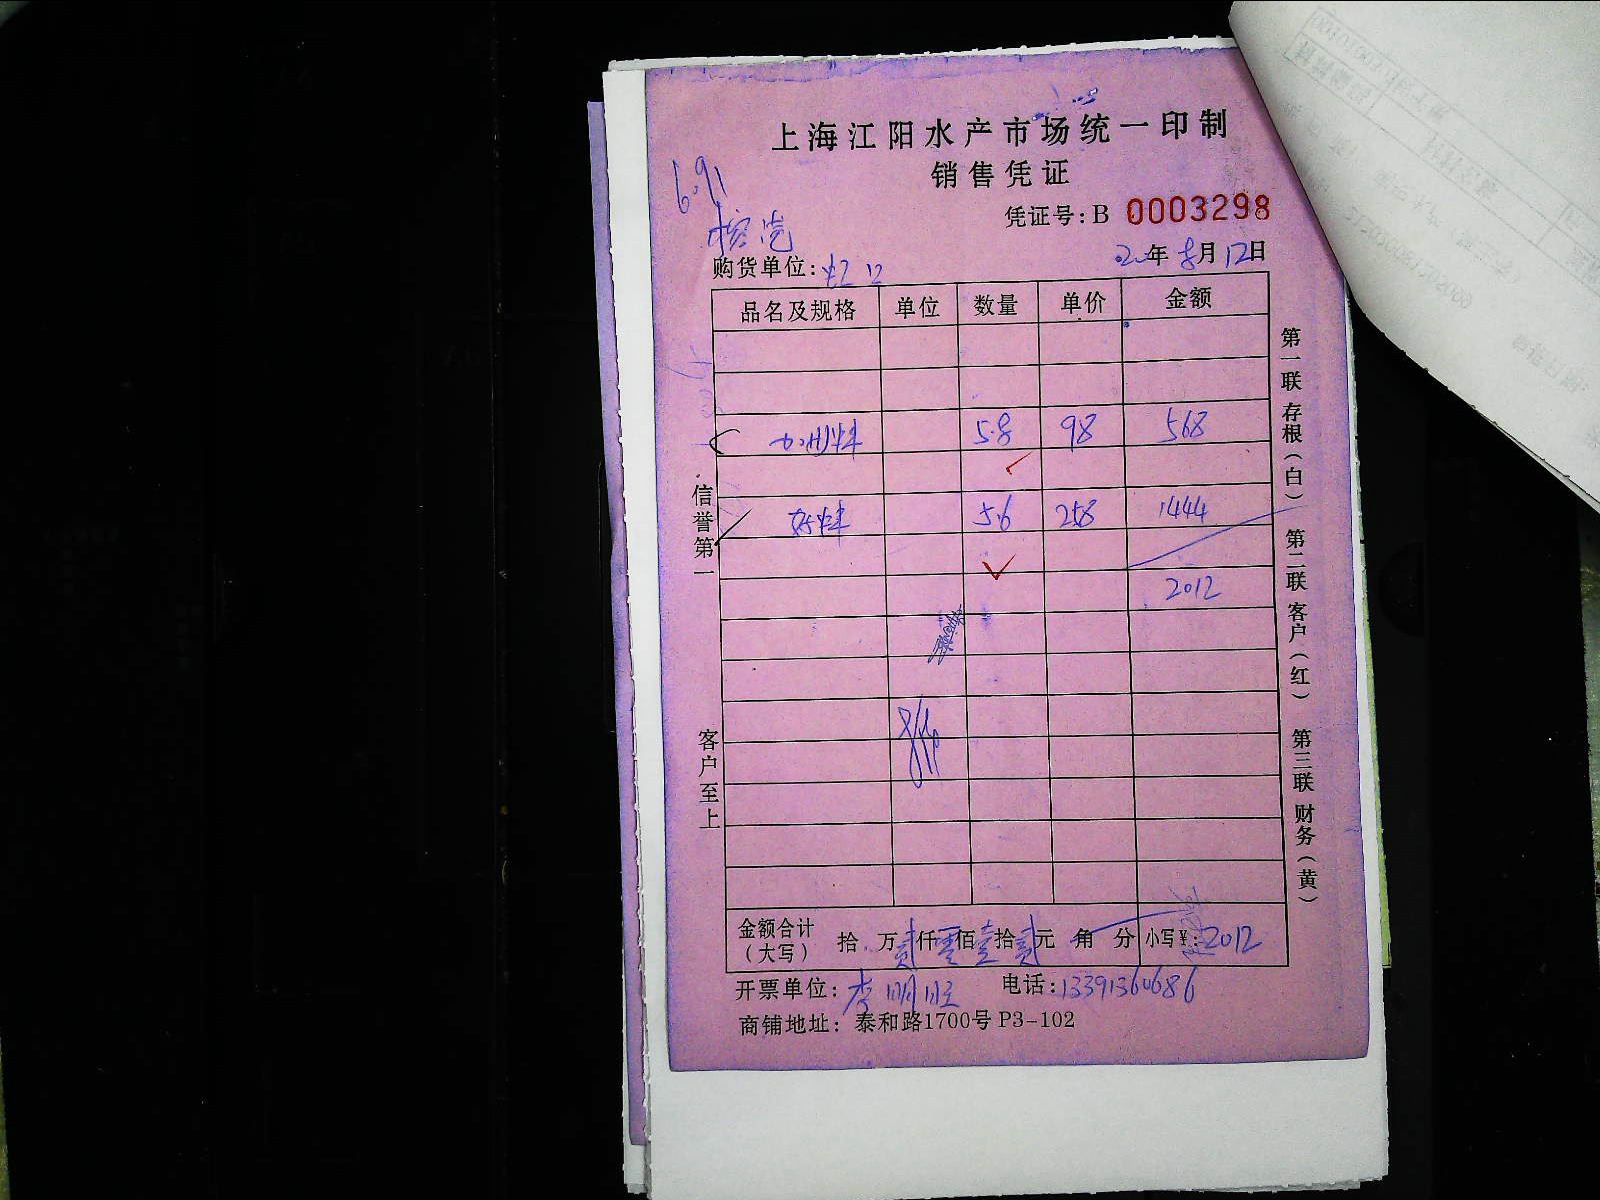 上海江阳水产市场统一印制
销售凭证
凭证号：B 0003298
6.91
购货单位：虹口
年 8月12日
品名及规格 单位 数量 单价 金额
加州 5.8 98 568
5.6 258 1444
2012
金额合计（大写） 拾 万贰仟零佰壹拾贰元 角 分 小写¥：2012
开票单位：李明旺 电话：13391360686
商铺地址：泰和路1700号 P3-102
信誉第一
客户至上
第一联 存根（白）
第二联 客户（红）
第三联 财务（黄）